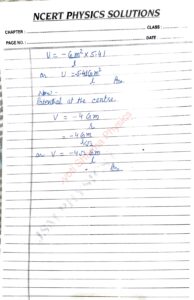 NCERT PHYSICS SOLUTIONS
CHAPTER :
CLASS :
PAGE NO. :
DATE :
V = -Gm² × 5.41
l
or U = -5.41Gm²
l Ans
Now -
Potential at the centre.
V = -4Gm
r
= -4Gm
l/√2
or V = -4√2 Gm
l
Ans